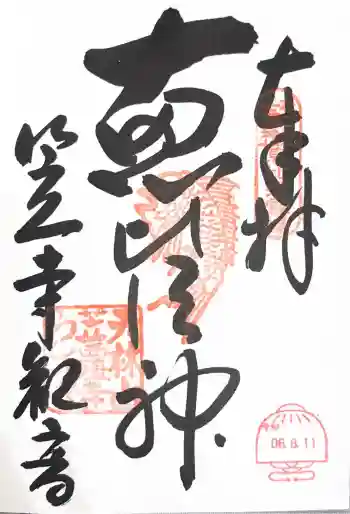 奉拝
恵比須神
笠寺観音
06.8.11